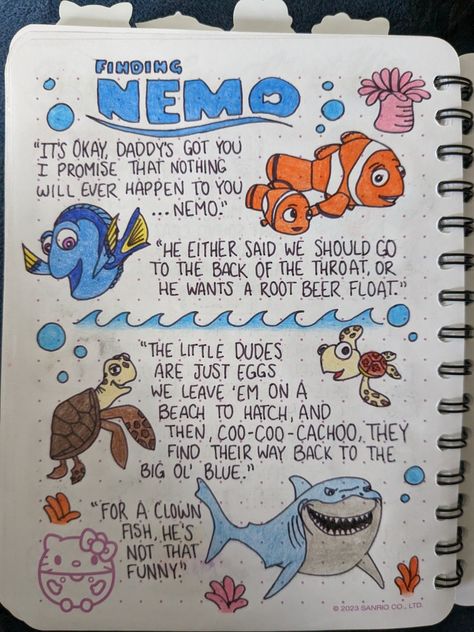 FINDING
NEMO
"IT'S OKAY, DADDY'S GOT YOU
I PROMISE THAT NOTHING
WILL EVER HAPPEN TO YOU
...NEMO."
"HE EITHER SAID WE SHOULD GO
TO THE BACK OF THE THROAT, OR
HE WANTS A ROOT BEER FLOAT."
"THE LITTLE DUDES
ARE JUST EGGS
WE LEAVE 'EM ON A
BEACH TO HATCH, AND
THEN, COO-COO-CACHOO, THEY
FIND THEIR WAY BACK TO THE
BIG OL' BLUE."
"FOR A CLOWN
FISH, HE'S
NOT THAT
FUNNY."
© 2023 SANRIO CO., LTD.